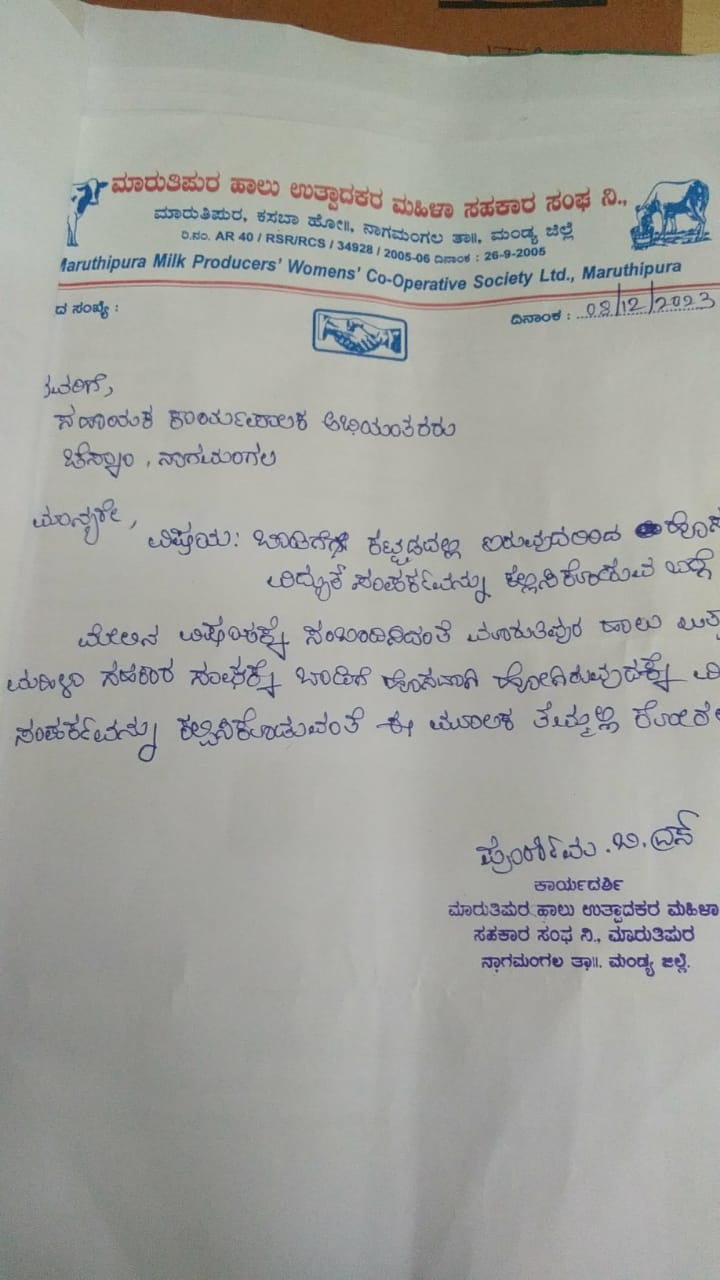 ಮಾರುತಿಪುರ ಹಾಲು ಉತ್ಪಾದಕರ ಮಹಿಳಾ ಸಹಕಾರ ಸಂಘ ನಿ.,
ಮಾರುತಿಪುರ, ಕಸಬಾ ಹೋ॥, ನಾಗಮಂಗಲ ತಾ॥, ಮಂಡ್ಯ ಜಿಲ್ಲೆ
ರಿ.ನಂ. AR 40 / RSR/RCS / 34928 / 2005-06 ದಿನಾಂಕ : 26-9-2005
Maruthipura Milk Producers' Womens' Co-Operative Society Ltd., Maruthipura
ದ ಸಂಖ್ಯೆ :
ದಿನಾಂಕ : 08/12/2023
ಸಹಾಯಕ ಕಾರ್ಯಪಾಲಕ ಅಭಿಯಂತರರು
ಚೆಸ್ಕಾಂ, ನಾಗಮಂಗಲ
ಮಾನ್ಯರೇ,
ವಿಷಯ: ಬಾಡಿಗೆ ಕಟ್ಟಡದಲ್ಲಿ ಇರುವುದರಿಂದ
ವಿದ್ಯುತ್ ಸಂಪರ್ಕವನ್ನು ಕಲ್ಪಿಸಿಕೊಡುವ ಬಗ್ಗೆ
ಮೇಲಿನ ವಿಷಯಕ್ಕೆ ಸಂಬಂದಿಸಿದಂತೆ ಮಾರುತಿಪುರ ಹಾಲು
ಮಹಿಳಾ ಸಹಕಾರ ಸಂಘಕ್ಕೆ ಬಾಡಿಗೆ ಹೊಸದಾಗಿ ಹೋಗಿರುವುದಕ್ಕೆ
ಸಂಪರ್ಕವನ್ನು ಕಲ್ಪಿಸಿಕೊಡುವಂತೆ ಈ ಮೂಲಕ ತಮ್ಮಲ್ಲಿ
ಕಾರ್ಯದರ್ಶಿ
ಮಾರುತಿಪುರ ಹಾಲು ಉತ್ಪಾದಕರ ಮಹಿಳಾ
ಸಹಕಾರ ಸಂಘ ನಿ., ಮಾರುತಿಪುರ
ನಾಗಮಂಗಲ ತಾ॥. ಮಂಡ್ಯ ಜಿಲ್ಲೆ.